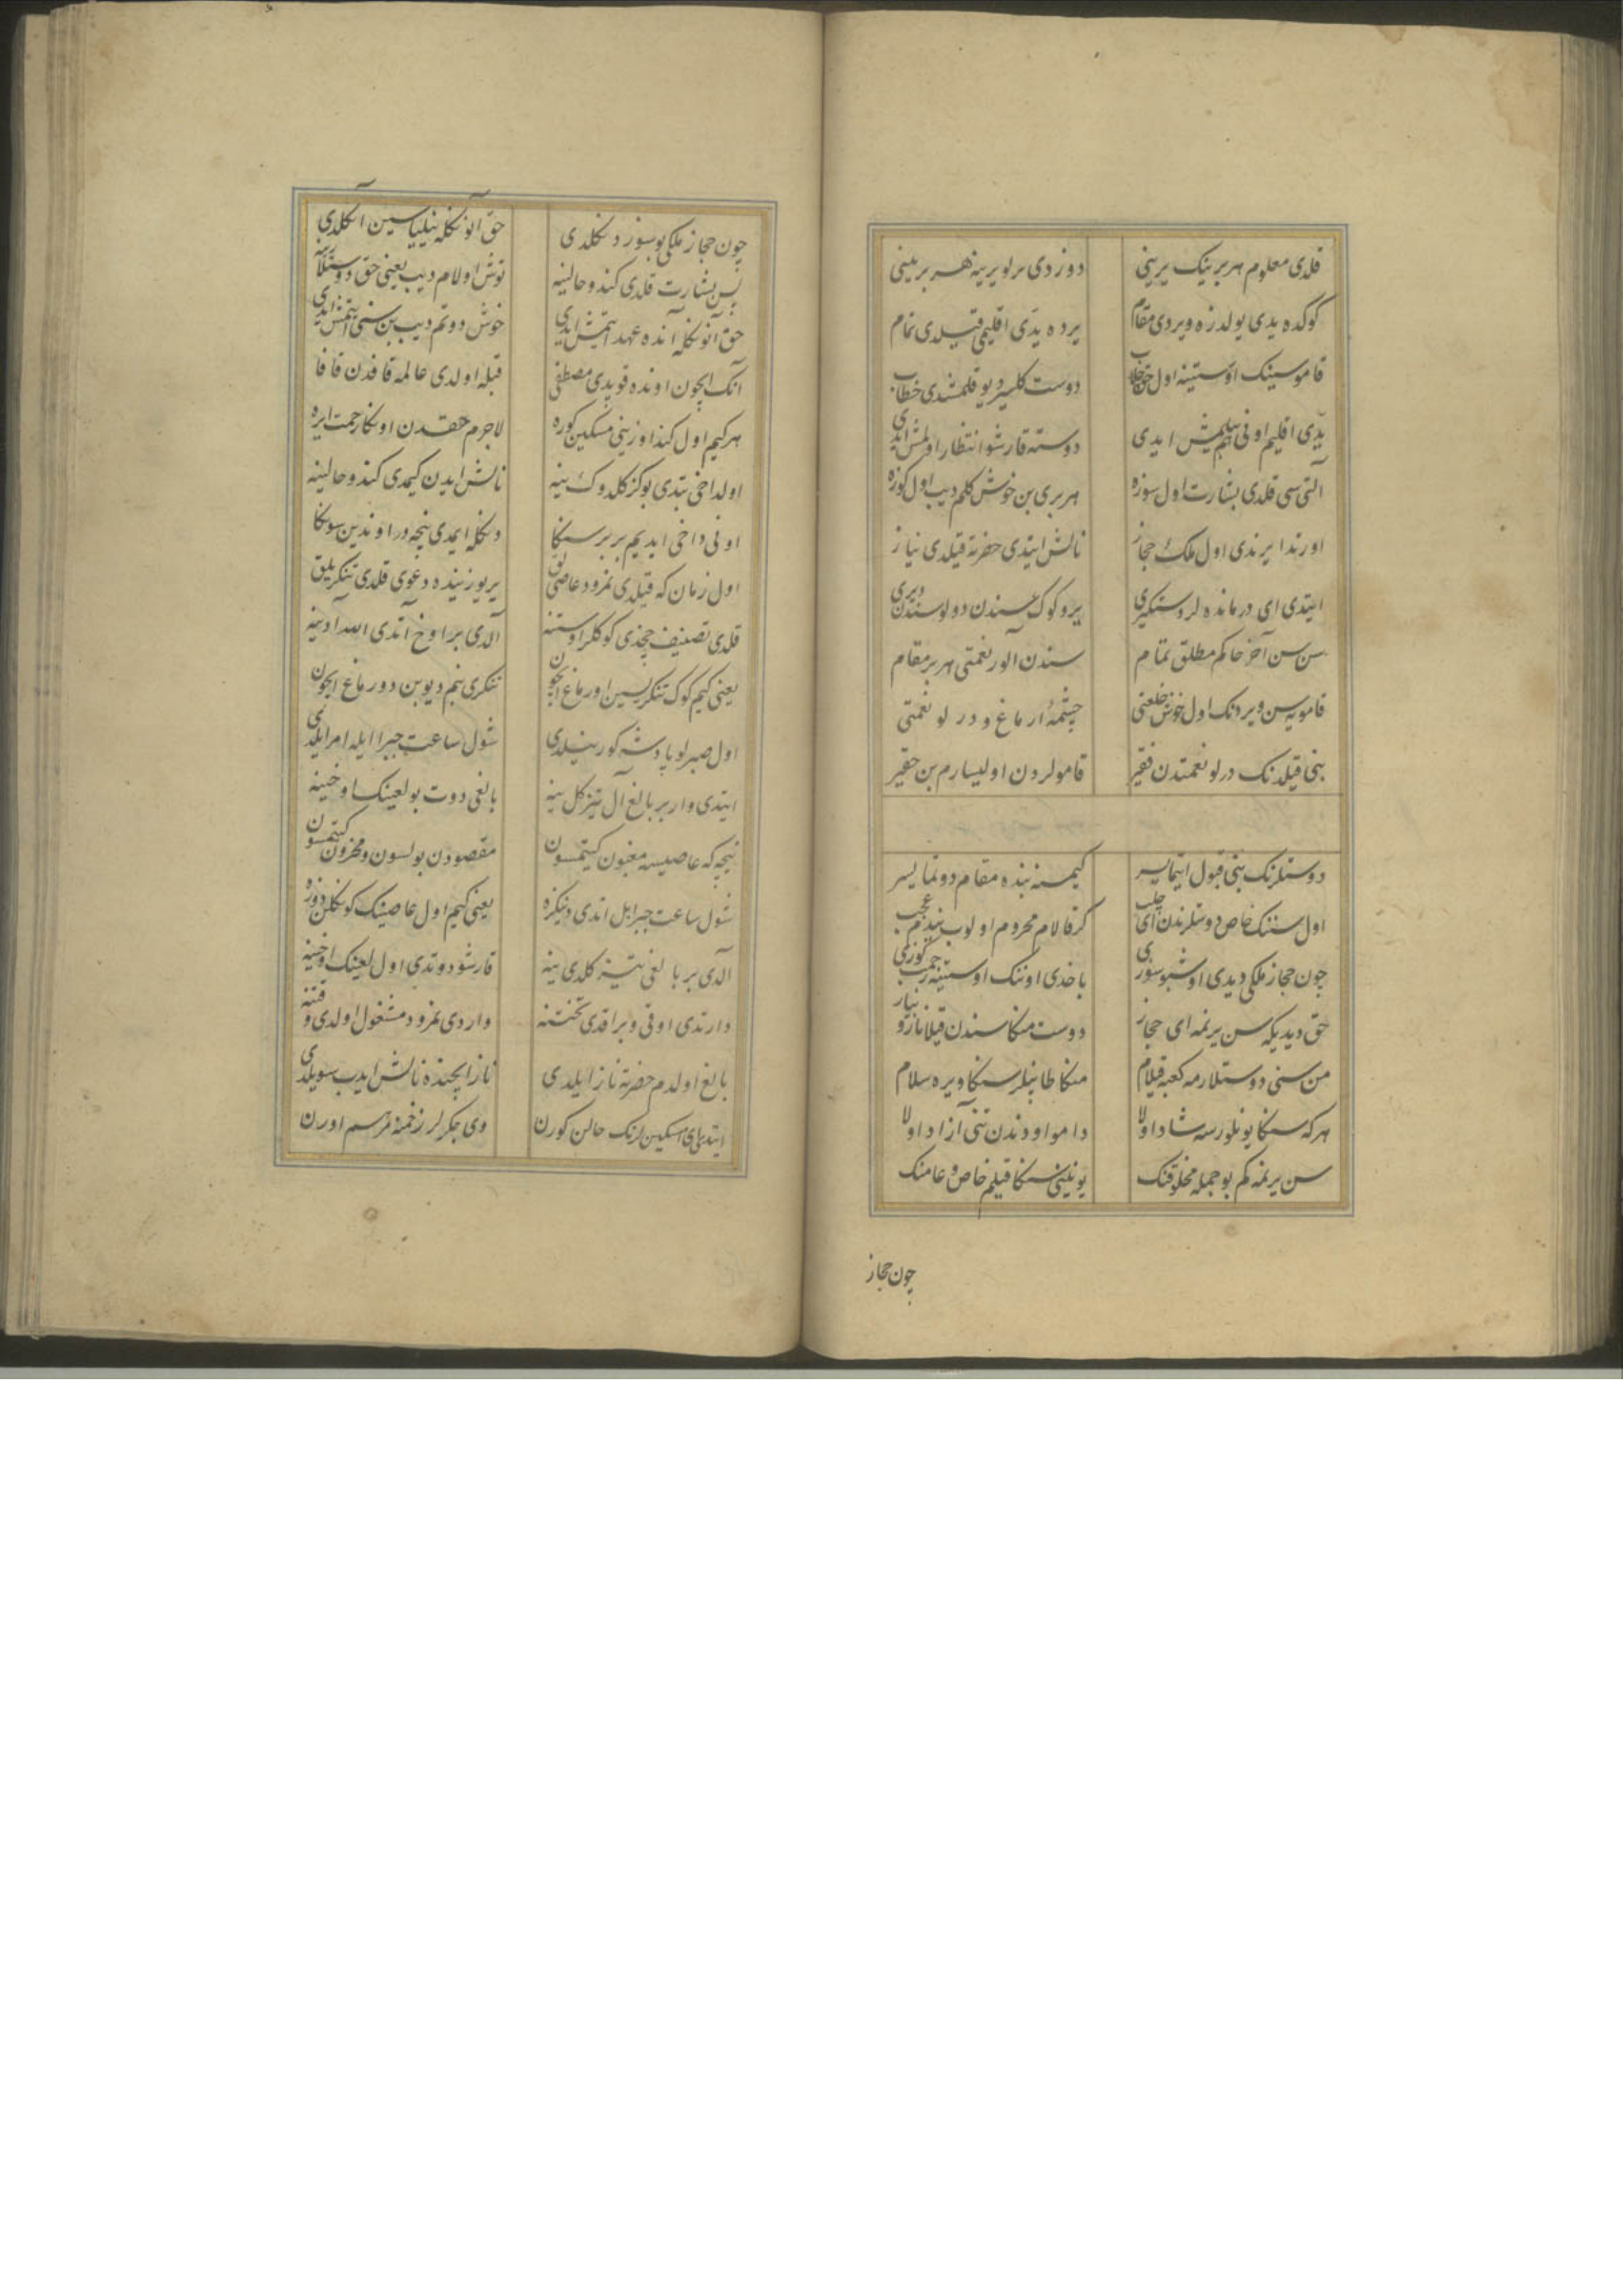 قلدی معلوم هر برینک یرینی دوزدی برلو یرینه هر برینی
کوکده یدی یولدزه ویردی مقام یرده یدی اقلیمی قیلدی تمام
قاموسینک اوستینه اول حق جلب دوست کلیسر دیو قلمشدی خطاب
یدی اقلیم اونی بیلمیش ایدی دوسته قارشو انتظار اولمش ایدی
التی سی قلدی بشارت اول سوزه هر بری بن خوش کلم دیب اول کوزه
اورتدا یرندی اول ملک حجاز نالش ایتدی حضرته قیلدی نیاز
ایتدی ای درمانده لر دستکیری یر و کوک سندن دولو سندن دیری
سن سن آخر حاکم مطلق تمام سندن الور نعمتی هر بر مقام
قامویه سن ویردنک اول خوش خلعتی چشمهٔ ارماغ و درلو نعمتی
بنی قیلدنک درلو نعمتدن فقیر قامولردن اولیسارم بن حقیر
دوستلرنک بنی قبول ایتمایسر کیمسه بنده مقام دوتمایسر
اول سننک خاص دوستلرندن ای چلب کر قالام محروم اولوب بندم عجب
چون حجاز ملکی دیدی اوشبو سوزی باخدی اوننک اوستینه رحمت کوزی
حق دیدیکه سن یرنمه ای حجاز دوست منکا سندن قیلا ناز و نیاز
من سنی دوستلارمه کعبه قیلام منکا طاپنلر سنکا ویره سلام
هر که سنکا یونلورسه شاد اولا دامو اودندن تنی آزاد اولا
سن یرنمه کم بو جمله مخلوقنک یونلینی سنکا قیلم خاص و عامنک
چون حجاز
چون حجاز ملکی بو سوز دنکلدی حق آنونکله نیلیاسین آنکلدی
پس بشارت قلدی کندو حالینه توش اولام دیب یعنی حق دوستلارینه
حق آنونکله آنده عهد ایتمش ایدی خوش دوتم دیب بن سنی ایتمش ایدی
آنک ایچون اونده قویدی مصطفی قبله اولدی عالمه قافدن قافا
هر کیم اول کند اوزینی مسکین کوره لاجرم حقدن اونکا رحمت ایره
اولداخی بتدی بو کز کلدوک ینه نالش ایدن کیمدی کندو حالینه
اونی داخی ایدیم بربر سنکا دنکله ایمدی نیجه در اوندین سونکا
اول زمان که قیلدی نمرود عاصی لوق یر یوزینده دعوی قلدی تنکریلیق
قلدی تصنیف چخدی کوکلر اوستنه آلدی بر اوخ آتدی الله آدینه
یعنی کیم کوک تنکریسین اورماغ ایچون تنکری بنم دیوبن دورماغ ایچون
اول صبرلو پادشه کورینلدی شول ساعت جبرائیله امر ایلدی
ایتدی وار بر بالغ آل تیز کل ینه بالغی دوت بو لعینک اوخینه
نیجه که عاصیسه مغبون کیتمسون مقصودن بولسون و محزون کیتمسون
شول ساعت جبرایل اندی دنیکزه یعنی کیم اول عاصینک کونکلن دوزه
آلدی بر بالغی تیز کلدی ینه قارشو دوتدی اول لعینک اوخینه
دارتدی اوقی و براقدی تختنه واردی نمرود مشغول اولدی و فتنه
بالغ اولدم حضرته ناز ایلدی ناز ایچنده نالش ایدب سویلدی
ایتدی ای مسکین لرنک حالن کورن وی جکرلر زخمنه مرسم اورن